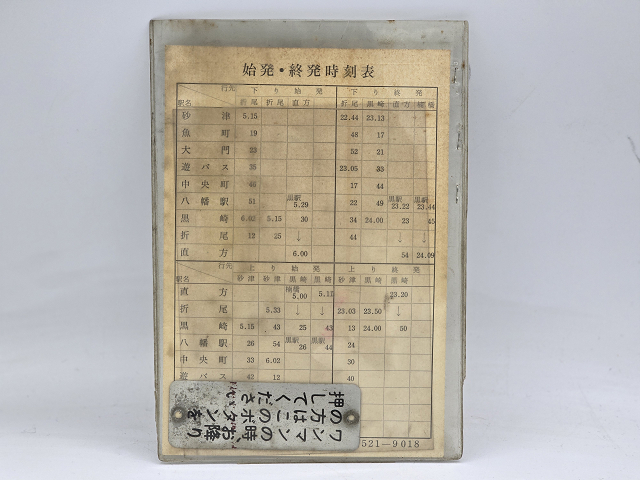 始発・終発時刻表
行先 下り始発 下り終発
駅名 折尾 折尾 直方 折尾 黒崎 直方
砂津 5.15 22.44 23.13
魚町 19 48 17
大門 23 52 21
遊バス 35 23.05 33
中央町 46 17 44
八幡駅 51 黒駅 5.29 22 49 黒駅 23.22 黒駅 23.44
黒崎 6.02 5.15 30 34 24.00 23 45
折尾 13 25 ↓ 44 ↓ ↓
直方 6.00 54 24.09
行先 上り始発 上り終発
駅名 砂津 砂津 黒崎 黒崎 砂津 黒崎 黒崎
直方 5.00 5.11 23.20
折尾 5.33 ↓ ↓ 23.03 23.50 ↓
黒崎 5.15 43 25 43 13 24.00 50
八幡駅 26 54 黒駅 26 黒駅 44 24
中央町 33 6.02 30
遊バス 42 12 40
521-9018
ワンマンの時、お降り
の方はこのボタンを
押してくださ